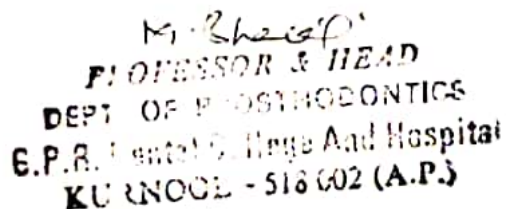 PROFESSOR & HEAD
DEPT. OF PROSTHODONTICS
G.P.R. Dental College And Hospital
KURNOOL - 518 002 (A.P.)